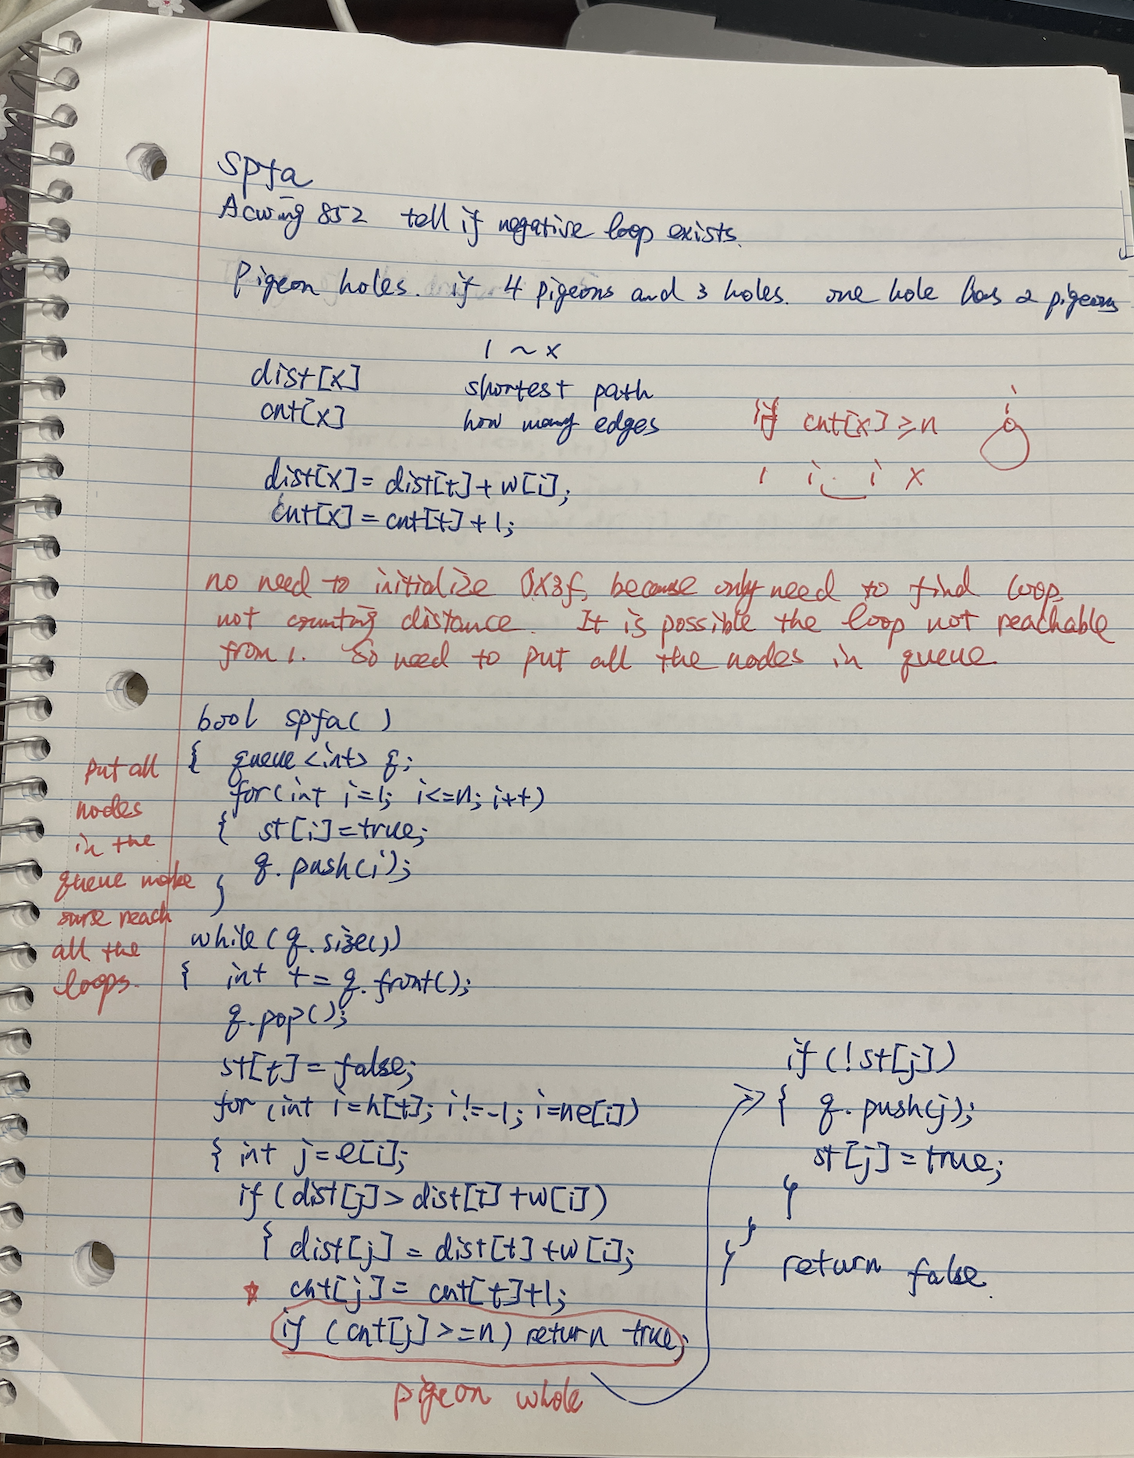 spfa
Acwing 852 tell if negative loop exists.
Pigeon holes. if 4 pigeons and 3 holes. one hole has 2 pigeons
1 ~ x
dist[x] shortest path
cnt[x] how many edges
if cnt[x] ≥ n
i
1 i i x
dist[x] = dist[t] + w[i];
cnt[x] = cnt[t] + 1;
no need to initialize 0x3f, because only need to find loop
not counting distance. It is possible the loop not reachable
from 1. So need to put all the nodes in queue.
put all
nodes
in the
queue make
sure reach
all the
loops.
bool spfa( )
{ queue <int> q;
for(int i=1; i<=n; i++)
{ st[i]=true;
q.push(i);
}
while(q.size())
{ int t = q.front();
q.pop();
st[t] = false;
for (int i=h[t]; i!=-1; i=ne[i])
{ int j=e[i];
if (dist[j] > dist[t] + w[i])
{ dist[j] = dist[t] + w[i];
* cnt[j] = cnt[t]+1;
if (cnt[j] >= n) return true;
pigeon whole
if(!st[j])
{ q.push(j);
st[j] = true;
}
}
} return false.